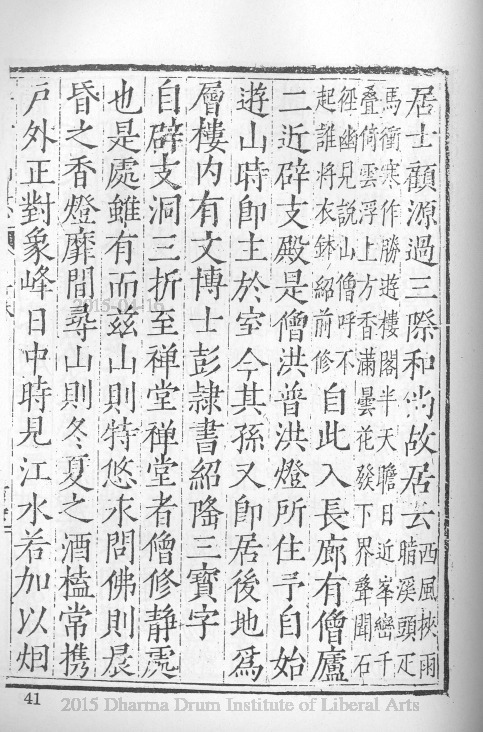 居士顧源過三際和尚故居云西風挾雨
暗溪頭疋
馬衝寒作勝遊樓閣半天瞻日近峯巒千
叠倚雲浮上方香滿曇花發下界聲聞石
徑幽見説山僧呼不
起誰將衣鉢紹前修自此入長廊有僧廬
二近辟支殿是僧洪普洪燈所住予自始
遊山時卽主於室今其孫又卽居後地爲
層樓内有文博士彭隷書紹隆三寶字
自辟支洞三折至禅堂禅堂者僧修静處
也是處雖有而兹山則特悠永問佛則晨
昏之香燈靡間尋山則冬夏之酒榼常携
戶外正對象峰日中時見江水若加以烟
41
2015 Dharma Drum Institute of Liberal Arts